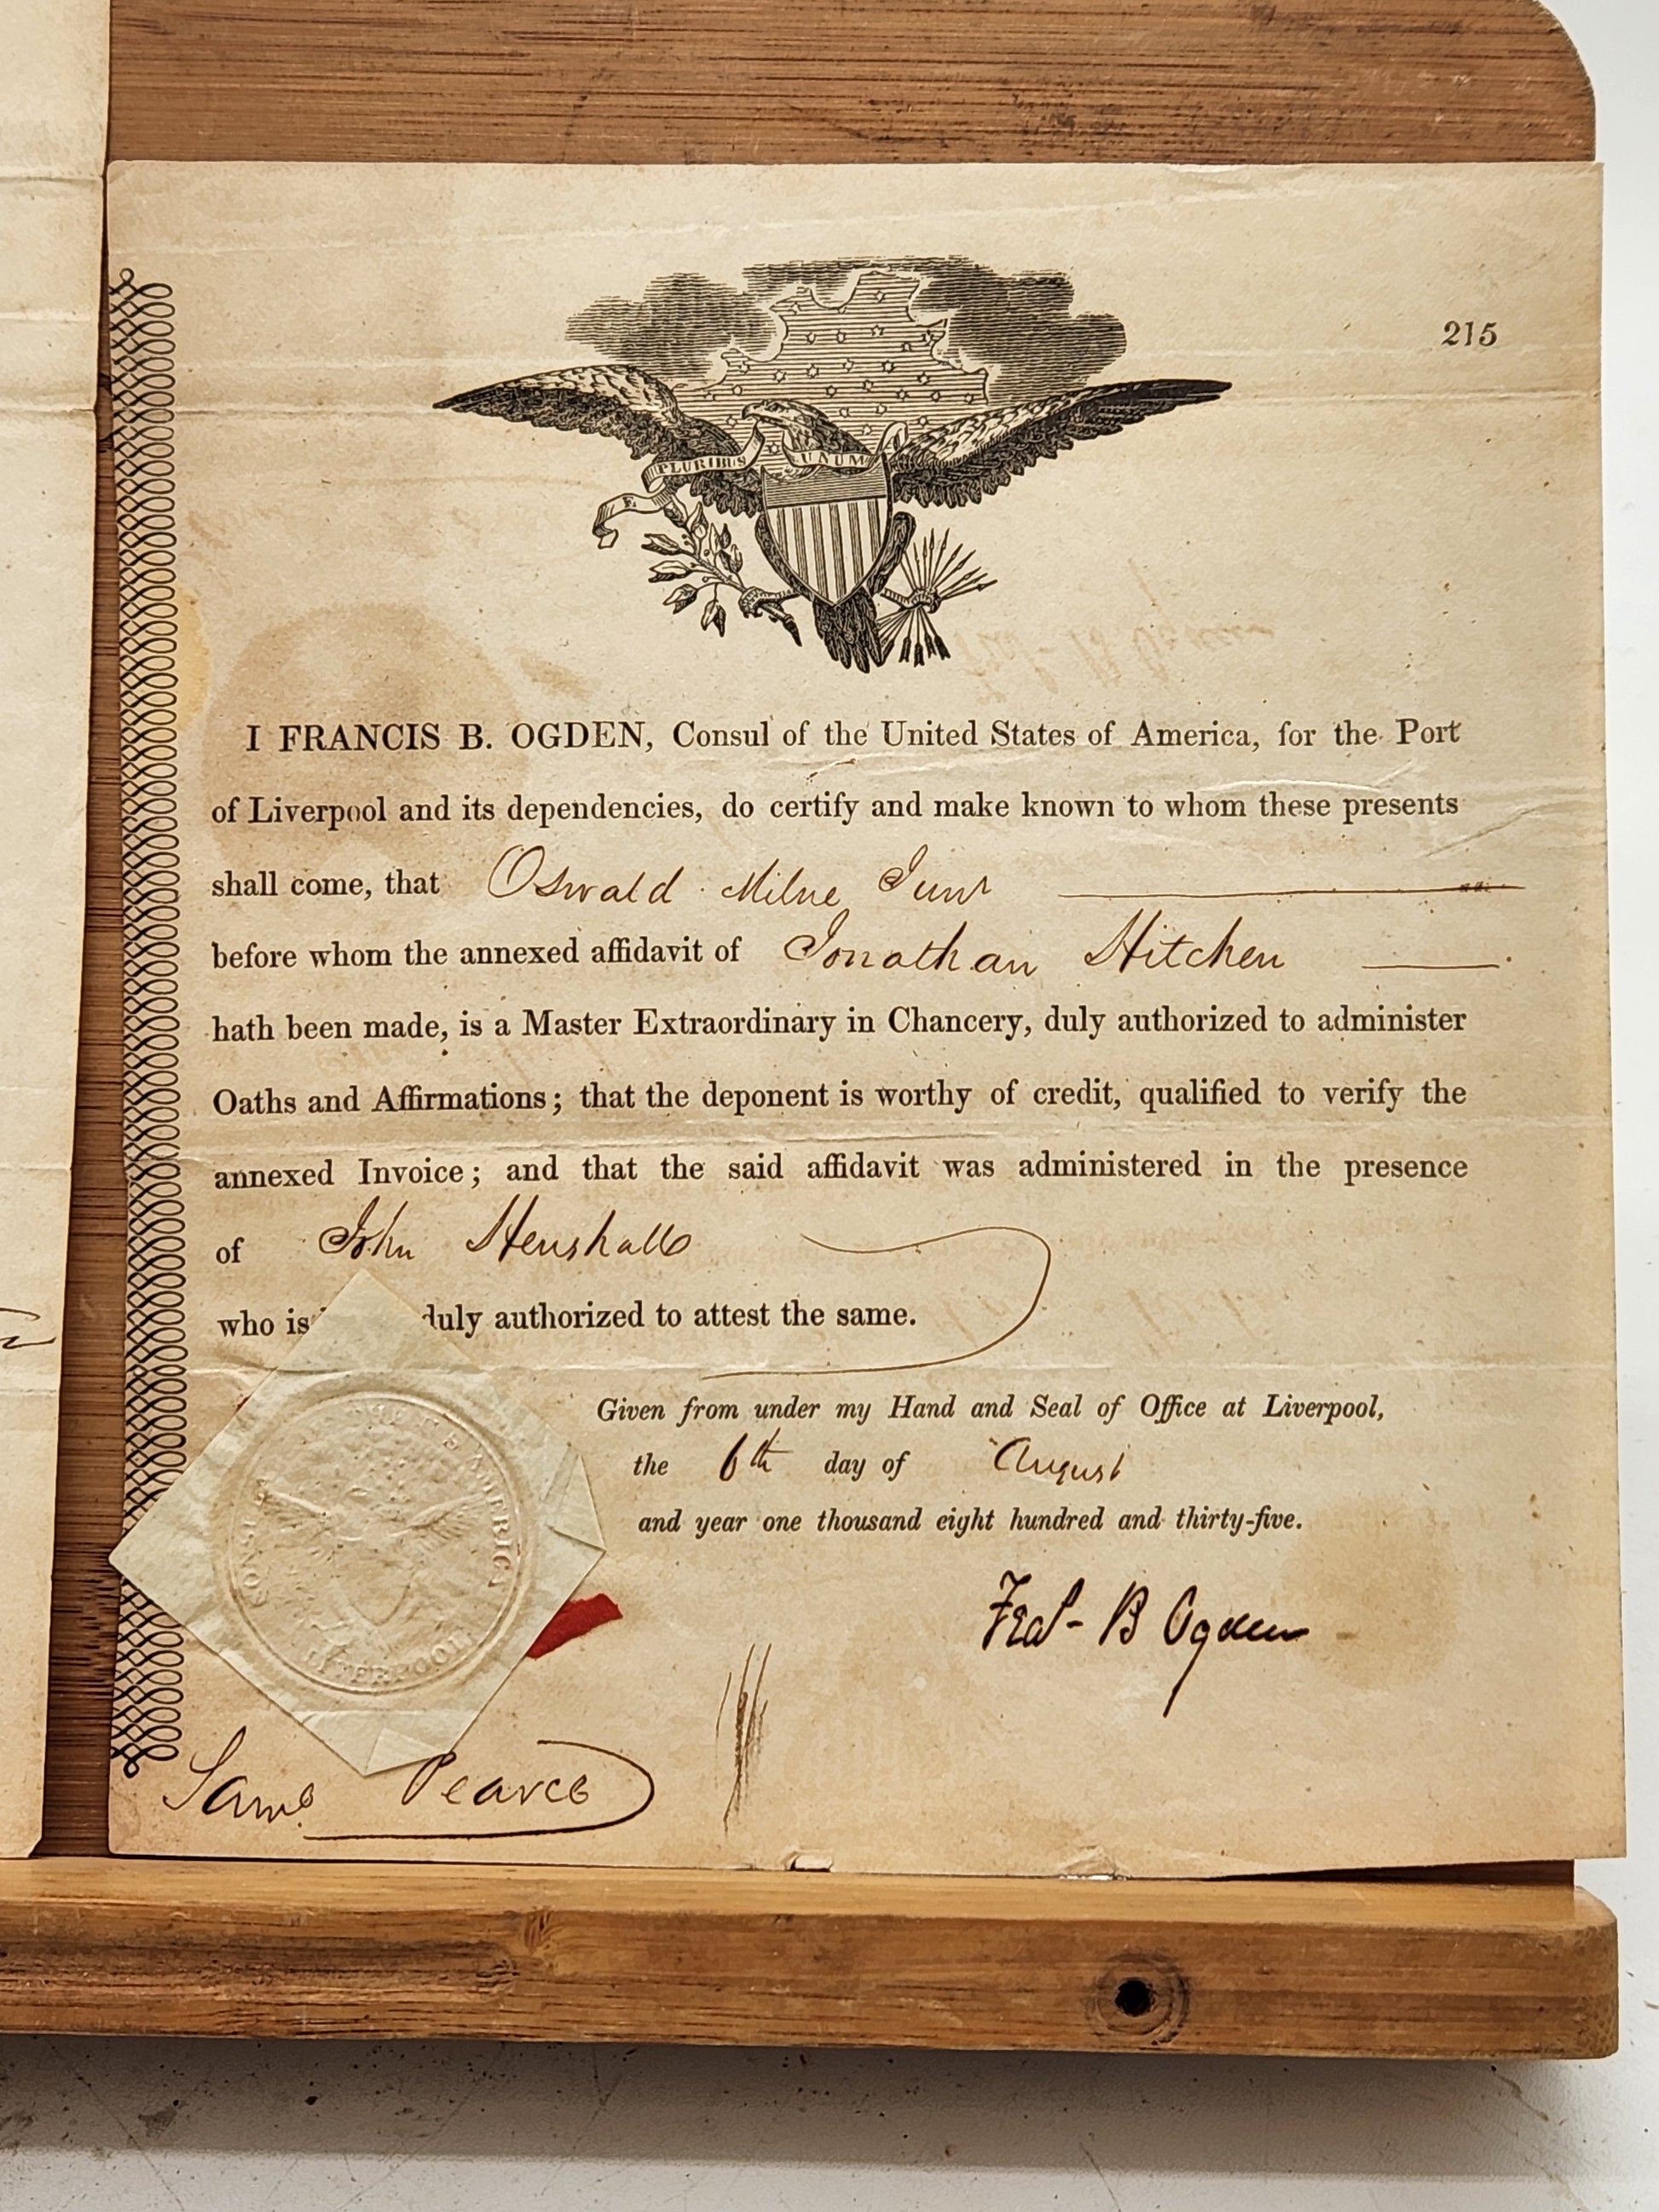 215
E PLURIBUS UNUM
I FRANCIS B. OGDEN, Consul of the United States of America, for the Port
of Liverpool and its dependencies, do certify and make known to whom these presents
shall come, that Oswald Milne Junr
before whom the annexed affidavit of Jonathan Hitchen
hath been made, is a Master Extraordinary in Chancery, duly authorized to administer
Oaths and Affirmations; that the deponent is worthy of credit, qualified to verify the
annexed Invoice; and that the said affidavit was administered in the presence
of John Henshall
who is duly authorized to attest the same.
Given from under my Hand and Seal of Office at Liverpool,
the 6th day of August
and year one thousand eight hundred and thirty-five.
Fra's B Ogden
CONSUL AMERICA
LIVERPOOL
Saml Pearce